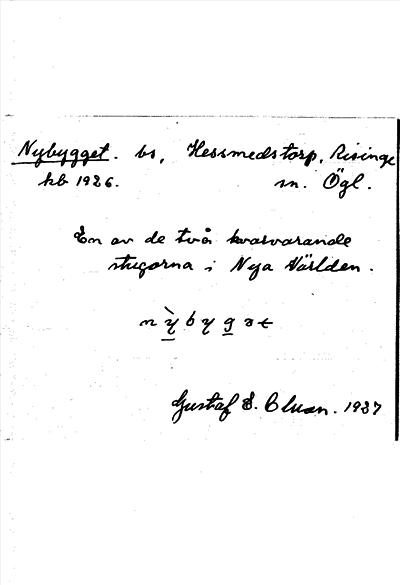 Nybygget. bs, Hessmedstorp, Risinge
kb 1926. sn. Ögl.
En av de två kvarvarande
stugorna i Nya Världen.
Gustaf E. Clsson. 1937